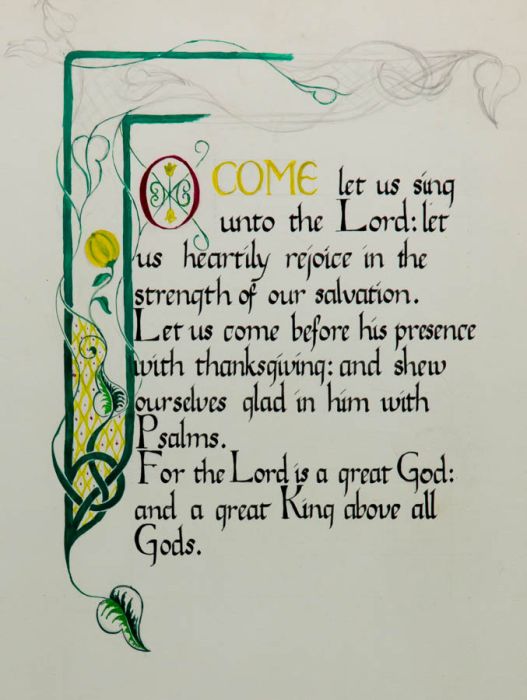 O COME let us sing
unto the Lord: let
us heartily rejoice in the
strength of our salvation.
Let us come before his presence
with thanksgiving: and shew
ourselves glad in him with
Psalms.
For the Lord is a great God:
and a great King above all
Gods.